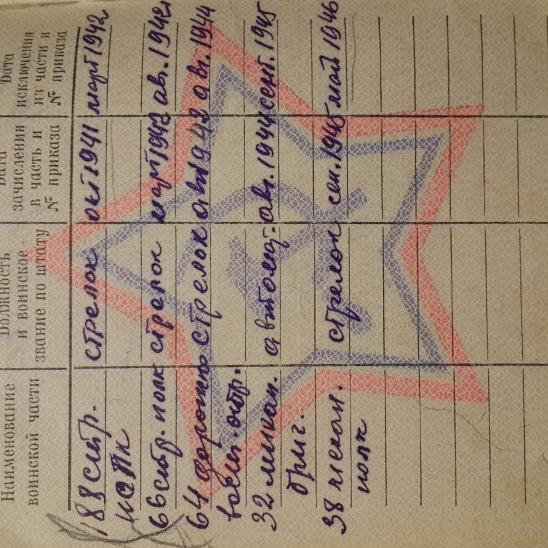 Наименование воинской части
Должность и воинское звание по штату
Дата зачисления в часть и № приказа
Дата исключения из части и № приказа
188 стр. полк стрелок окт 1941 март 1942
66 стр. полк стрелок март 1942 авг. 1942
64 стрелок авг 1942 авг. 1944
32 автом. авг. 1944 сент. 1945
бриг.
38 стрелок сен. 1945 май 1946
полк